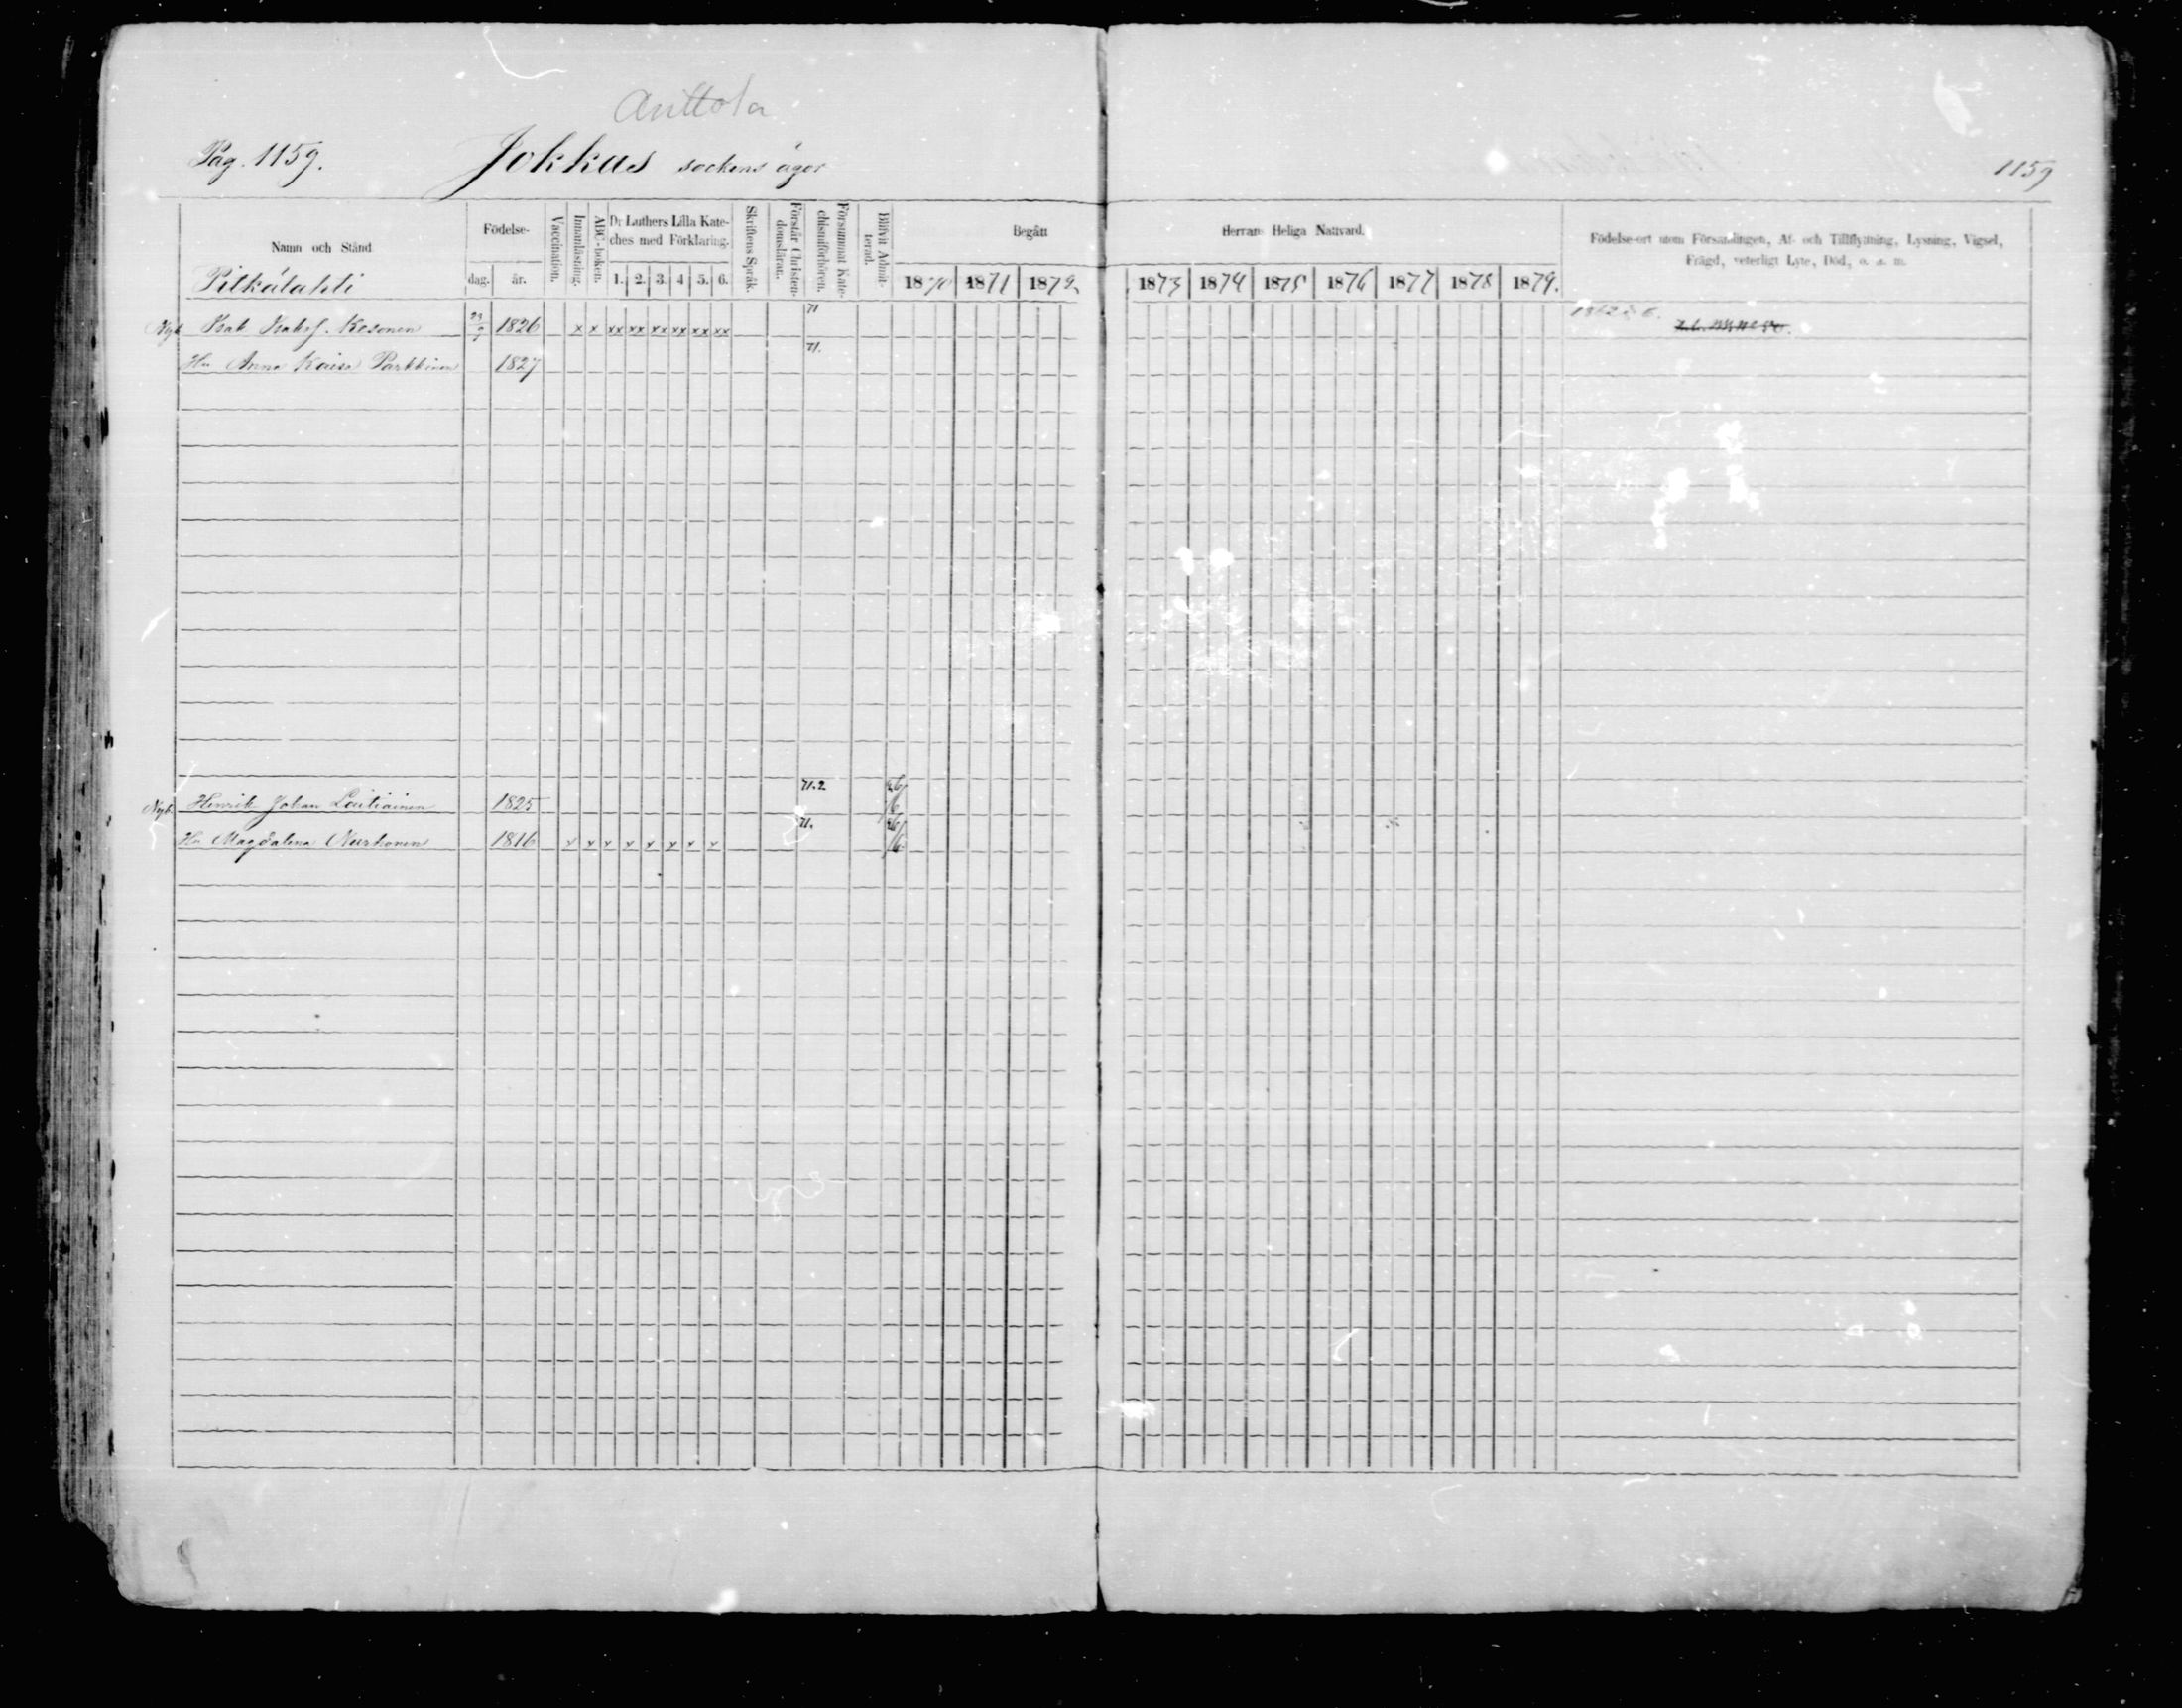 Anttola
Pag. 1159. Jokkas sockens ägor 1159
Namn och Stånd
Födelse-
dag. år.
Vaccination.
Innanläsning.
ABC-boken.
Dr Luthers Lilla Kate-
ches med Förklaring.
1. 2. 3. 4 5. 6.
Skriftens Språk.
Förstår Christen-
domsläran.
Försummat Kate-
chismiförhören.
Blifvit Admit-
terad.
Begått Herrans Heliga Nattvard.
1870 1871 1872 1873 1874 1875 1876 1877 1878 1879.
Födelse-ort utom Församlingen, Af- och Tillflyttning, Lysning, Vigsel,
Frägd, veterligt Lyte, Död, o. s. m.
Pitkälahti
Nyb. Isak Isaksf. Kosonen 1826 x x xx xx xx xx xx xx 71
Hu Anna Kaisa Parkkinen 1827 71.
Nyb. Henrik Johan Loutiainen 1825 71.2
Hu Magdalena Nurhonen 1816 x x x x x x x x 71.